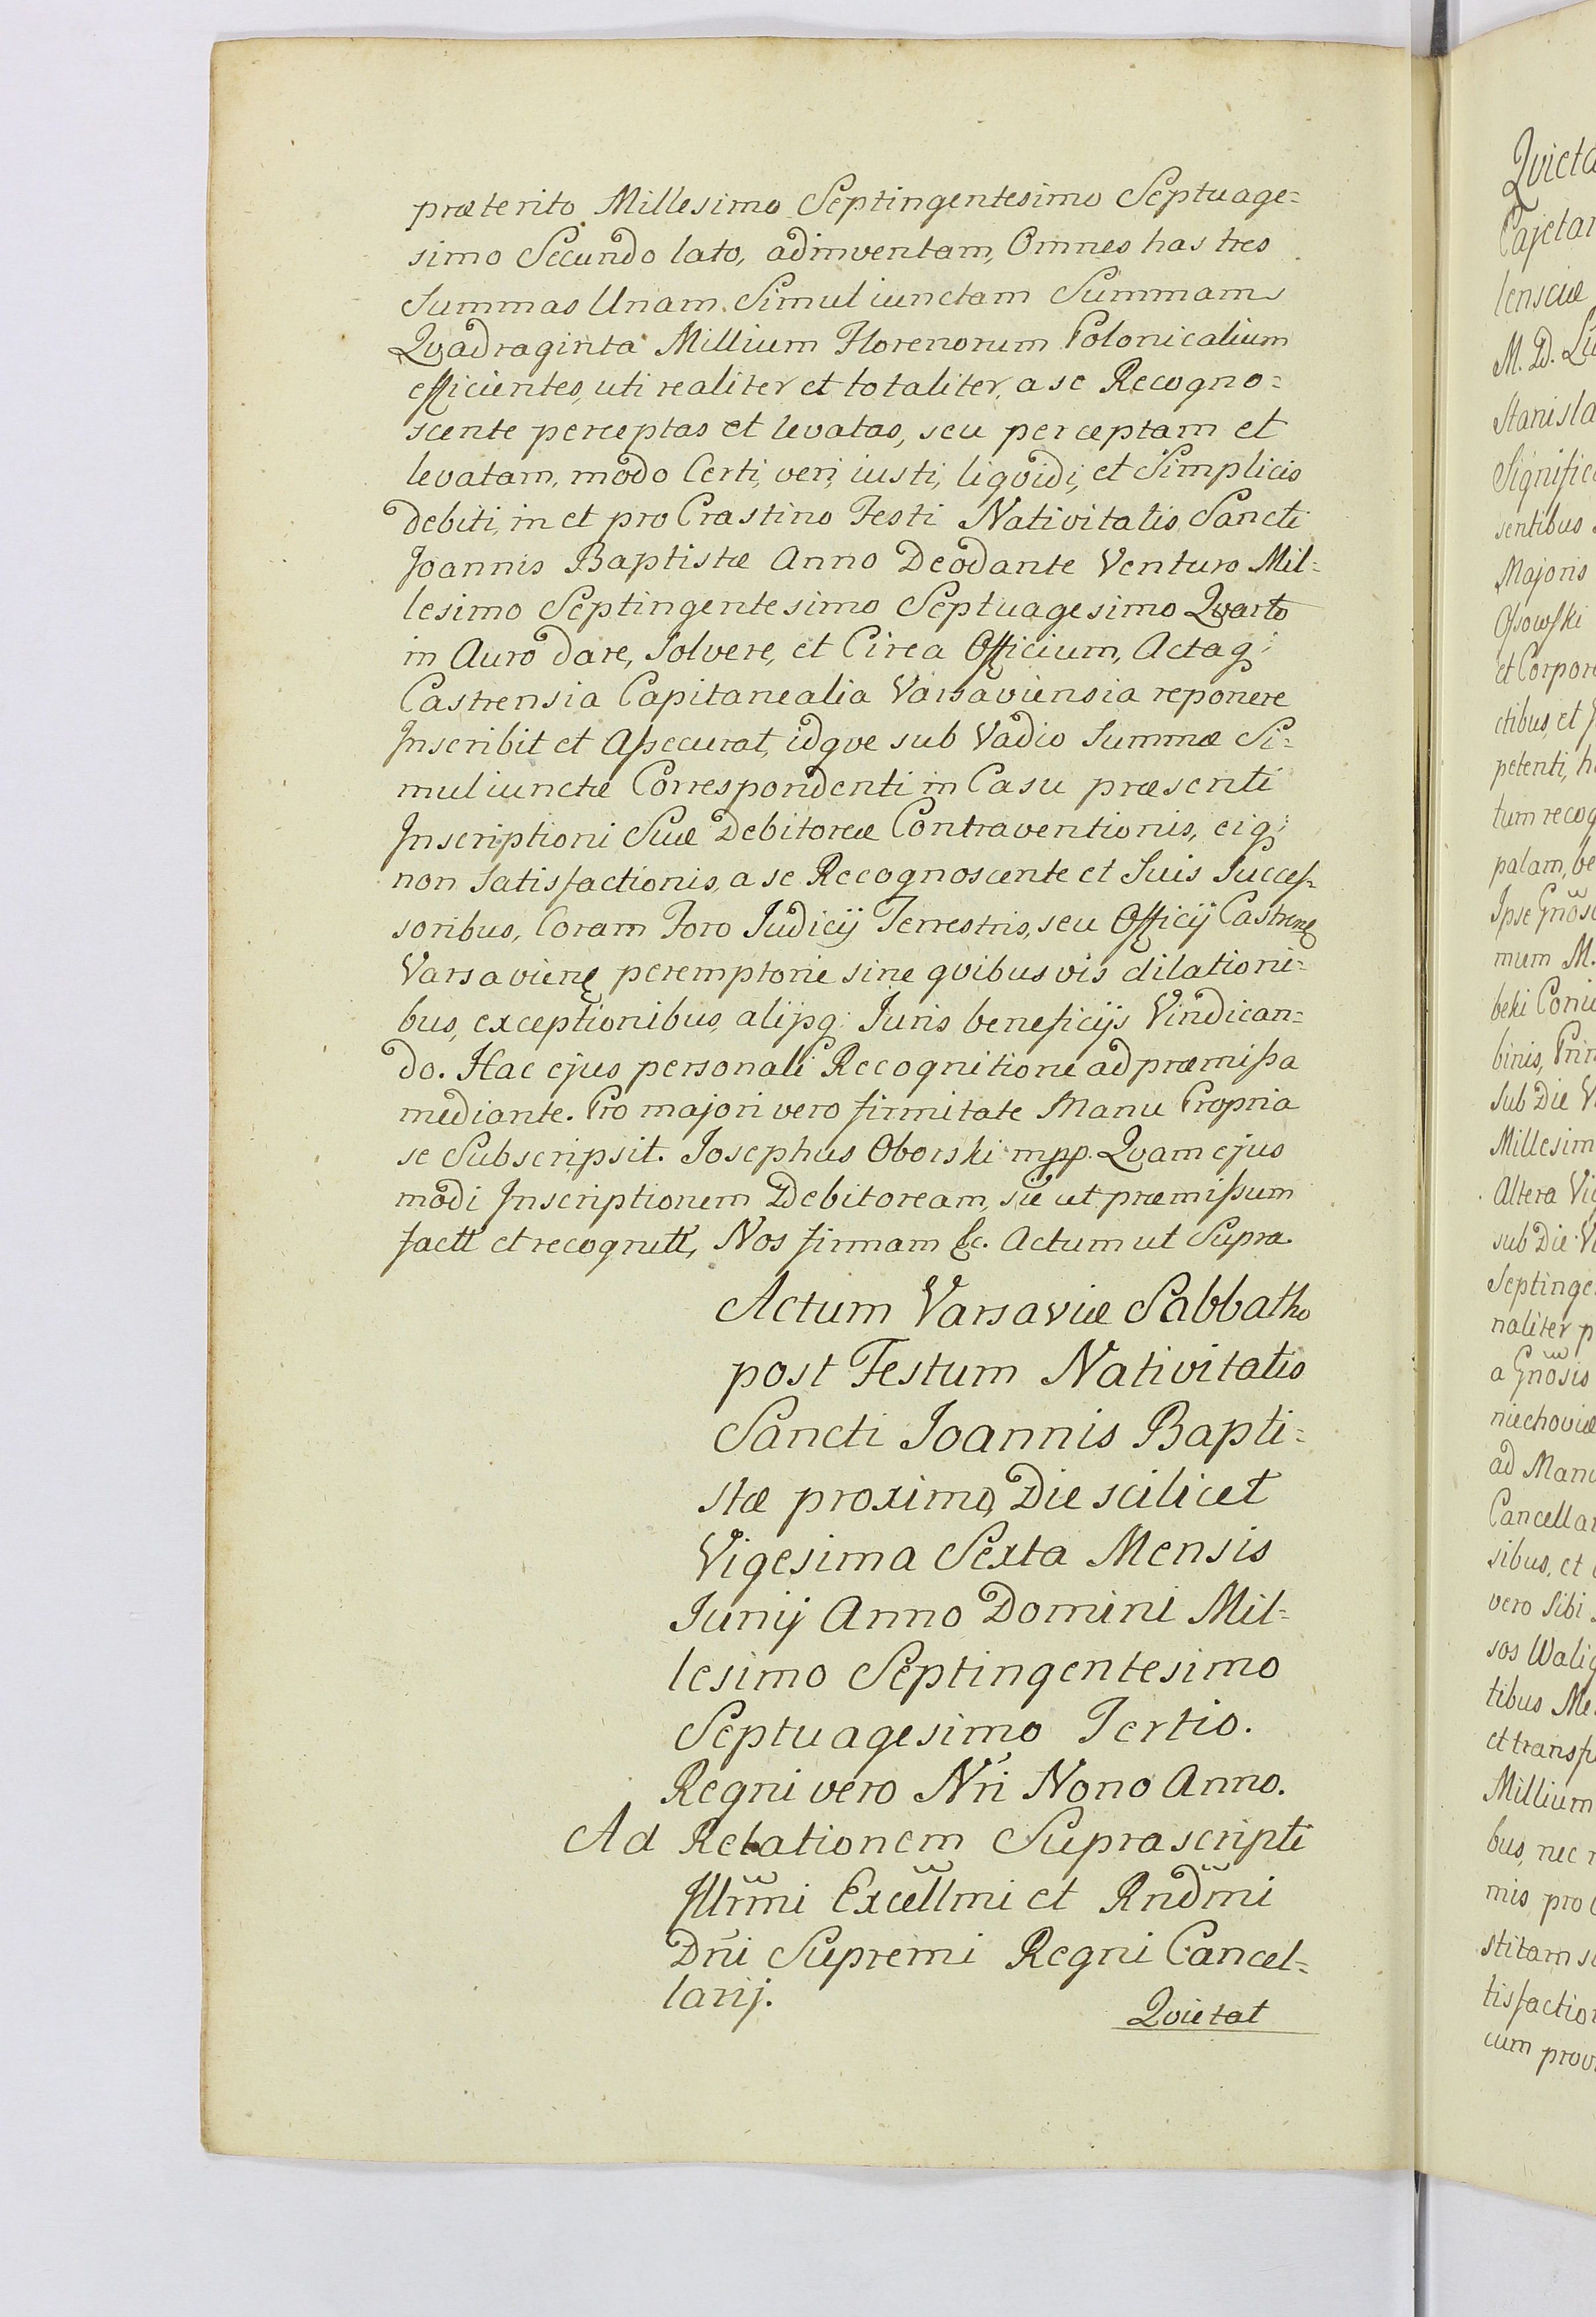 præterito Millesimo Septingentesimo Septuage=
simo Secundo lato, adinventam, Omnes has tres
Summas Unam Simul iunctam Summam
Qvadraginta Millium Florenorum Polonicalium
efficientes, uti realiter et totaliter, a se Recogno=
scente perceptas et levatas, seu perceptam et
levatam, modo Certi, veri, iusti, liqvidi, et Simplicis
debiti, in et pro Crastino Festi Nativitatis Sancti
Joannis Baptistæ Anno Deodante Venturo Mil=
lesimo Septingentesimo Septuagesimo Qvarto
in Auro dare, Solvere, et Circa Officium, Actaq;
Castrensia Capitanealia Varsaviensia reponere
Inscribit et Assecurat, idqve sub Vadio Summæ Si=
muliunctæ Correspondenti in Casu præsenti
Inscriptioni Suæ Debitoreæ Contraventionis, eiq;
non Satisfactionis, a se Recognoscente et Suis Succes=
soribus, Coram Foro Iudicij Terrestris, seu Officij Castrenę
Varsavienę peremptorie sine qvibusvis dilationi=
bus, exceptionibus, alijsq; Iuris beneficijs Vindican=
do. Hac ejus personali Recognitione ad præmissa
mediante. Pro majori vero firmitate Manu Propria
se Subscripsit. Iosephus Oborski mpp. Qvam ejus
modi Inscriptionem Debitoream, sic ut præmissum
factt et recognitt, Nos firmam &c. Actum ut Supra.
Actum Varsaviæ Sabbatho
post Festum Nativitatis
Sancti Ioannis Bapti=
stæ proximo, Die scilicet
Vigesima Sexta Mensis
Iunij Anno Domini Mil=
lesimo Septingentesimo
Septuagesimo Tertio.
Regni vero Nri Nono Anno.
Ad Relationem Suprascripti
Illrmi Excellmi et Rndmi
Dni Supremi Regni Cancel=
larij.
Qvietat
Qvieta
Cajetan
lensciæ
M. D. Lu
Stanisla
Signific
sentibus
Majoris
Ossowski
et Corpor
ctibus, et
petenti, h
tum recog
palam, be
Ipse Gnos
mum M.
beki Coni
binis, Prim
Sub Die V
Millesim
Altera Vi
sub Die V
Septinge
naliter p
a Gnosis
niechoviæ
ad Manu
Cancellar
sibus, et
vero Sibi
sos Walig
tibus Me
et transfu
Millium
bus, nec
mis pro
stitam s
tisfaction
cum prov